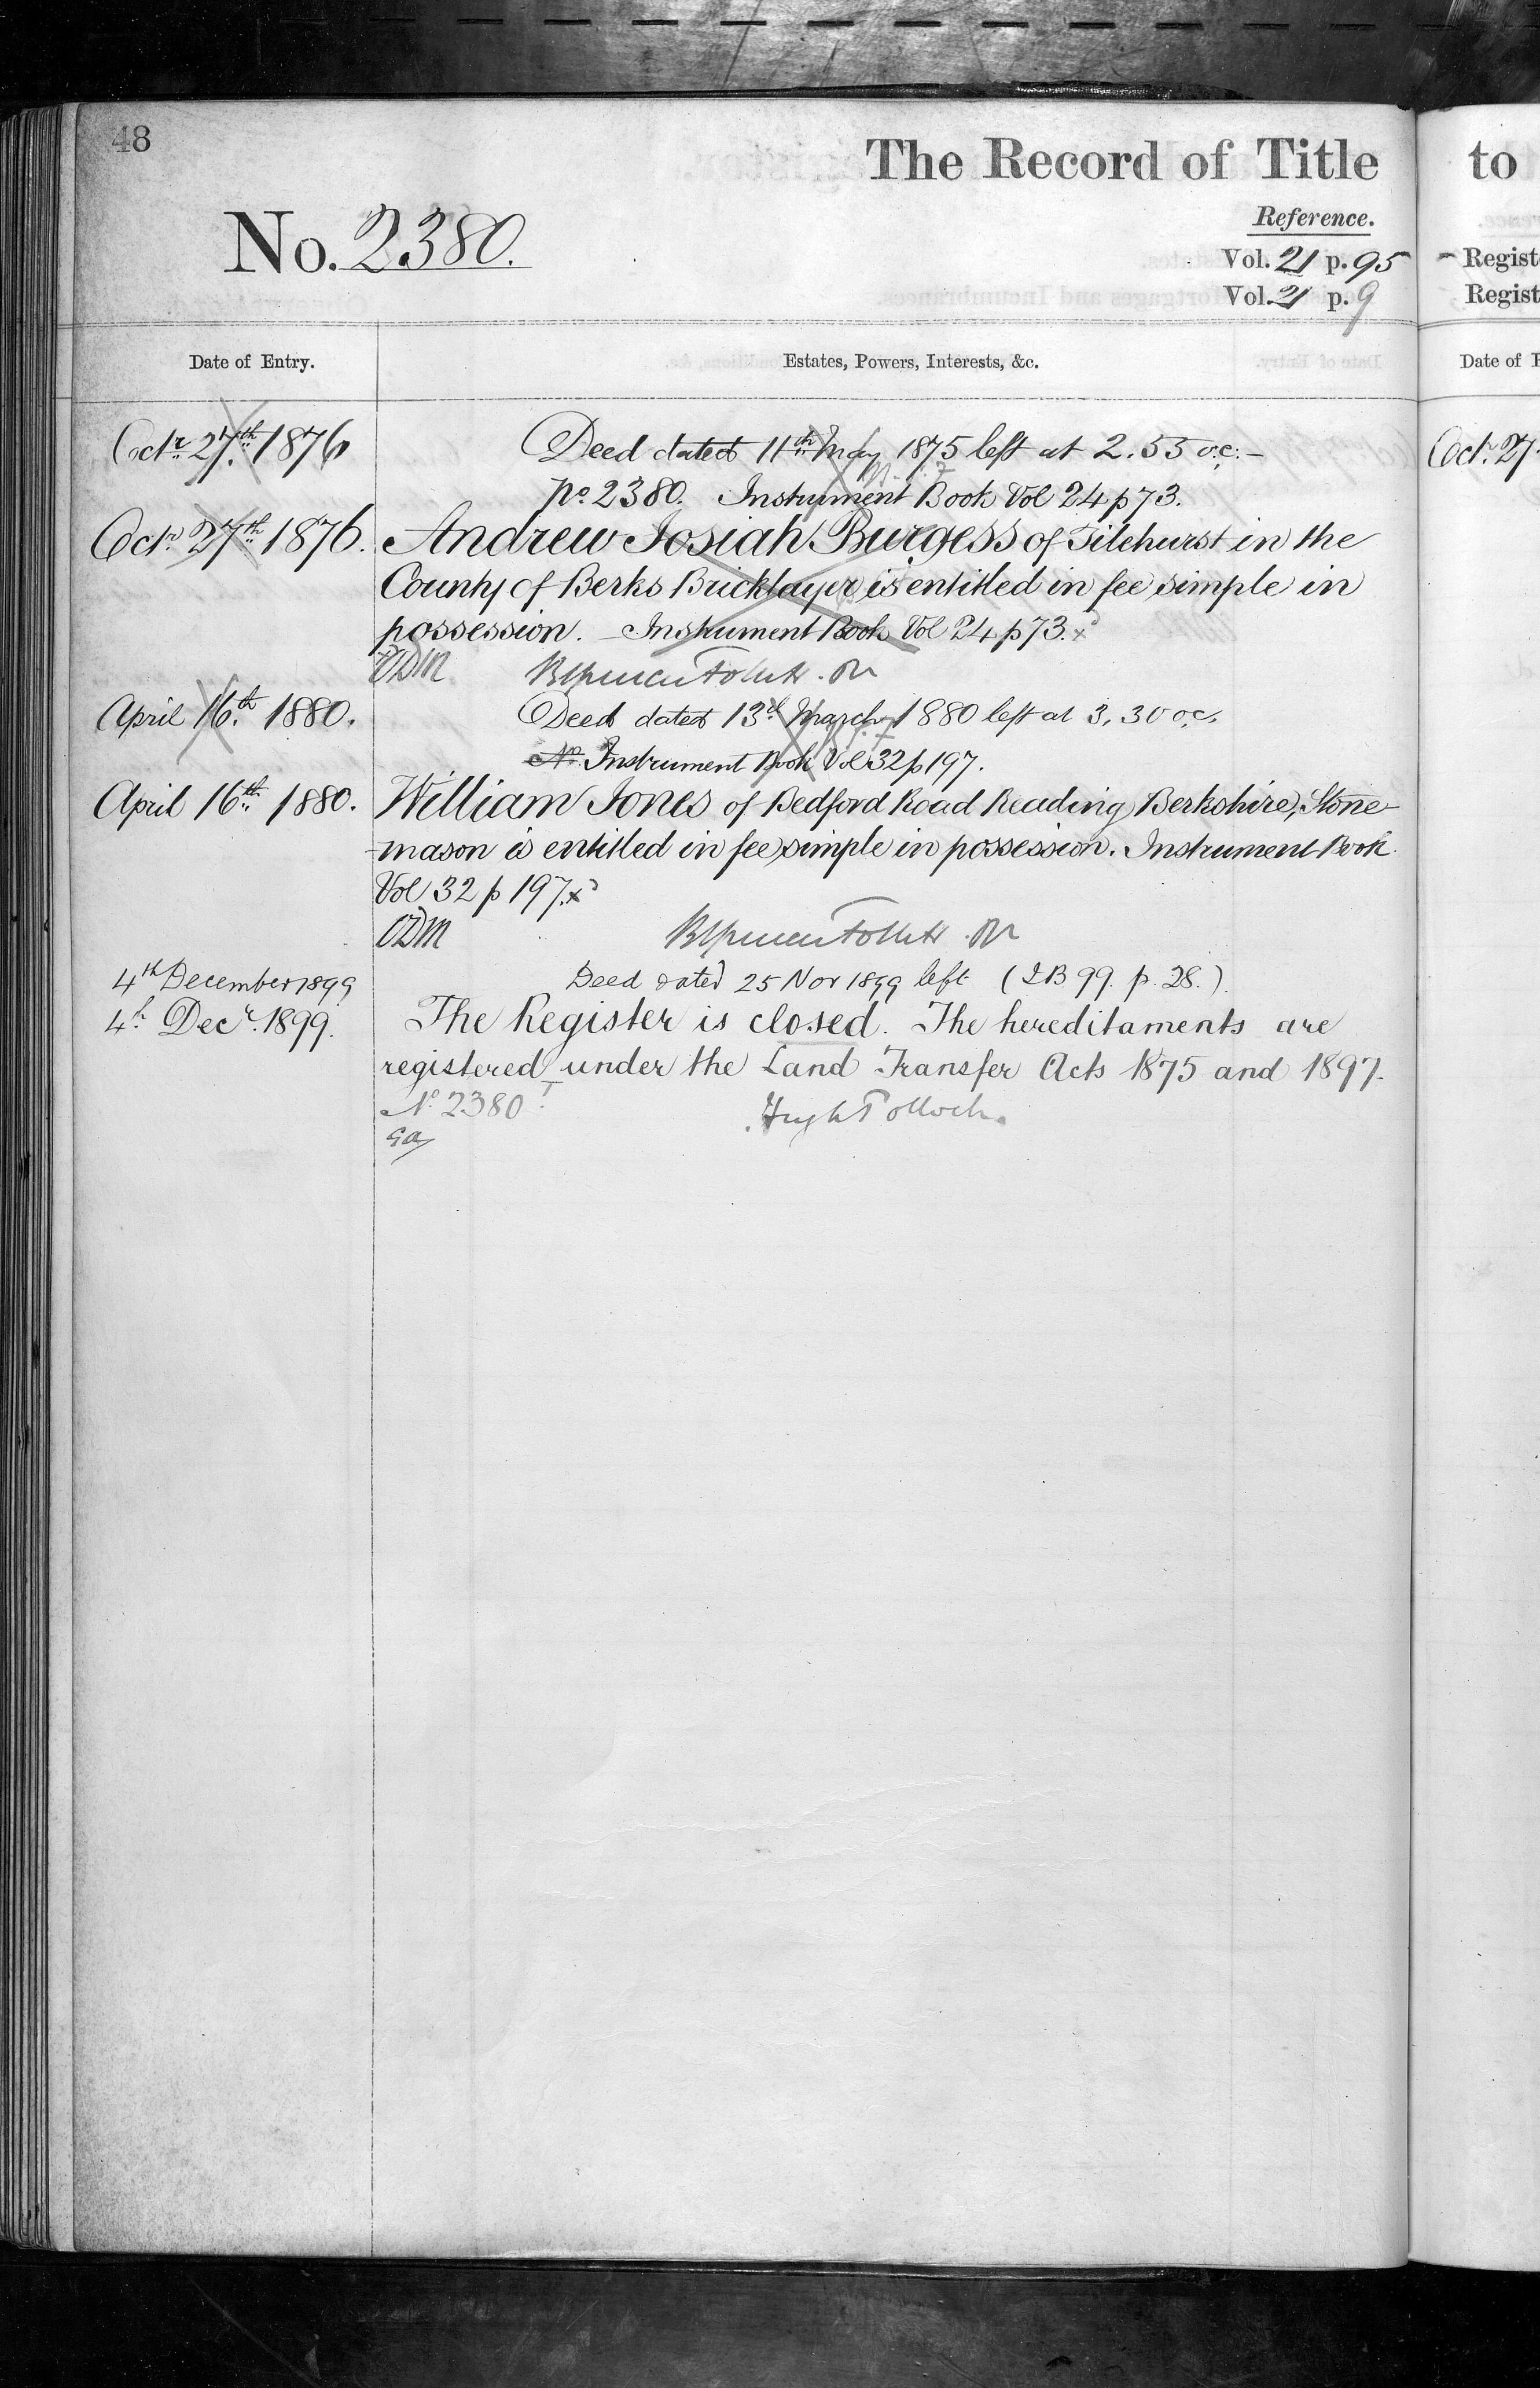 48
The Record of Title
to
Reference.
No. 2380.
Vol. 21 p. 95
Vol. 21 p. 9
Regist
Regist
Date of Entry.
Estates, Powers, Interests, &c.
Date of E
Octr. 27th. 1876
Deed dated 11th May 1875 left at 2.55 oc:-
Oct. 27
No. 2380. Instrument Book Vol 24 p 73.
Octr. 27th 1876.
Andrew Josiah Burgess of Tilehurst in the
County of Berks Bricklayer is entitled in fee simple in
possession. - Instrument Book Vol 24 p 73. x
ODM
April 16th. 1880.
Deed dated 13th March 1880 left at 3.30 oc.
No. Instrument Book Vol 32 p 197.
April 16th. 1880.
William Jones of Bedford Road Reading Berkshire, Stone-
-mason is entitled in fee simple in possession. Instrument Book
Vol 32 p 197. x
ODM
4th December 1899
Deed dated 25 Nov 1899 left (IB 99. p. 28.)
4th Decr. 1899.
The Register is closed. The hereditaments are
registered under the Land Transfer Acts 1875 and 1897.
No 2380
Hugh Pollock